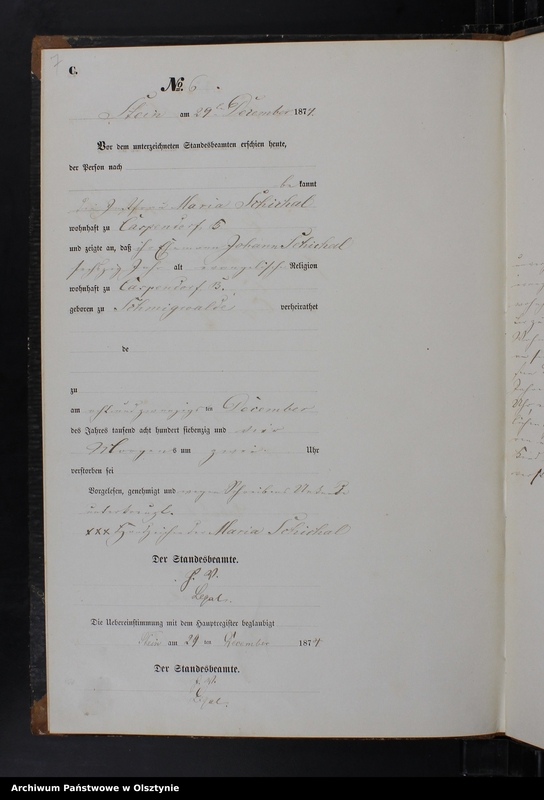 7
C.
No. 6.
Stein am 29ten December 1874.
Vor dem unterzeichneten Standesbeamten erschien heute,
der Person nach
bekannt
Maria Schichal
wohnhaft zu Carpendorf B
und zeigte an, daß ihr Ehemann Johann Schichal
sechszig Jahr alt evangelischer Religion
wohnhaft zu Carpendorf B.
geboren zu verheirathet
de
zu
am achtundzwanzigsten December
des Jahres tausend acht hundert siebenzig und vier
Morgens um zwei Uhr
verstorben sei
Vorgelesen, genehmigt und wegen Schreibens
unterkreuzt.
xxx Handzeichen der Maria Schichal
Der Standesbeamte.
J. V.
Die Uebereinstimmung mit dem Hauptregister beglaubigt
Stein am 29 ten December 1874
Der Standesbeamte.
J. V.
Archiwum Państwowe w Olsztynie